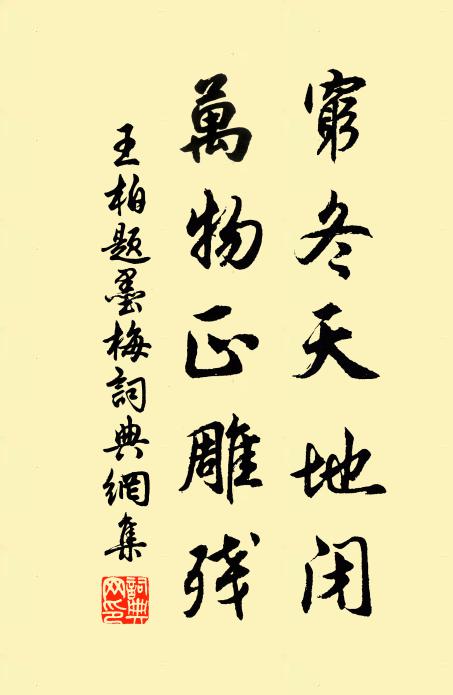 窮冬天地闭
萬物正雕残
王柏題墨梅詞典網集
詞典网印